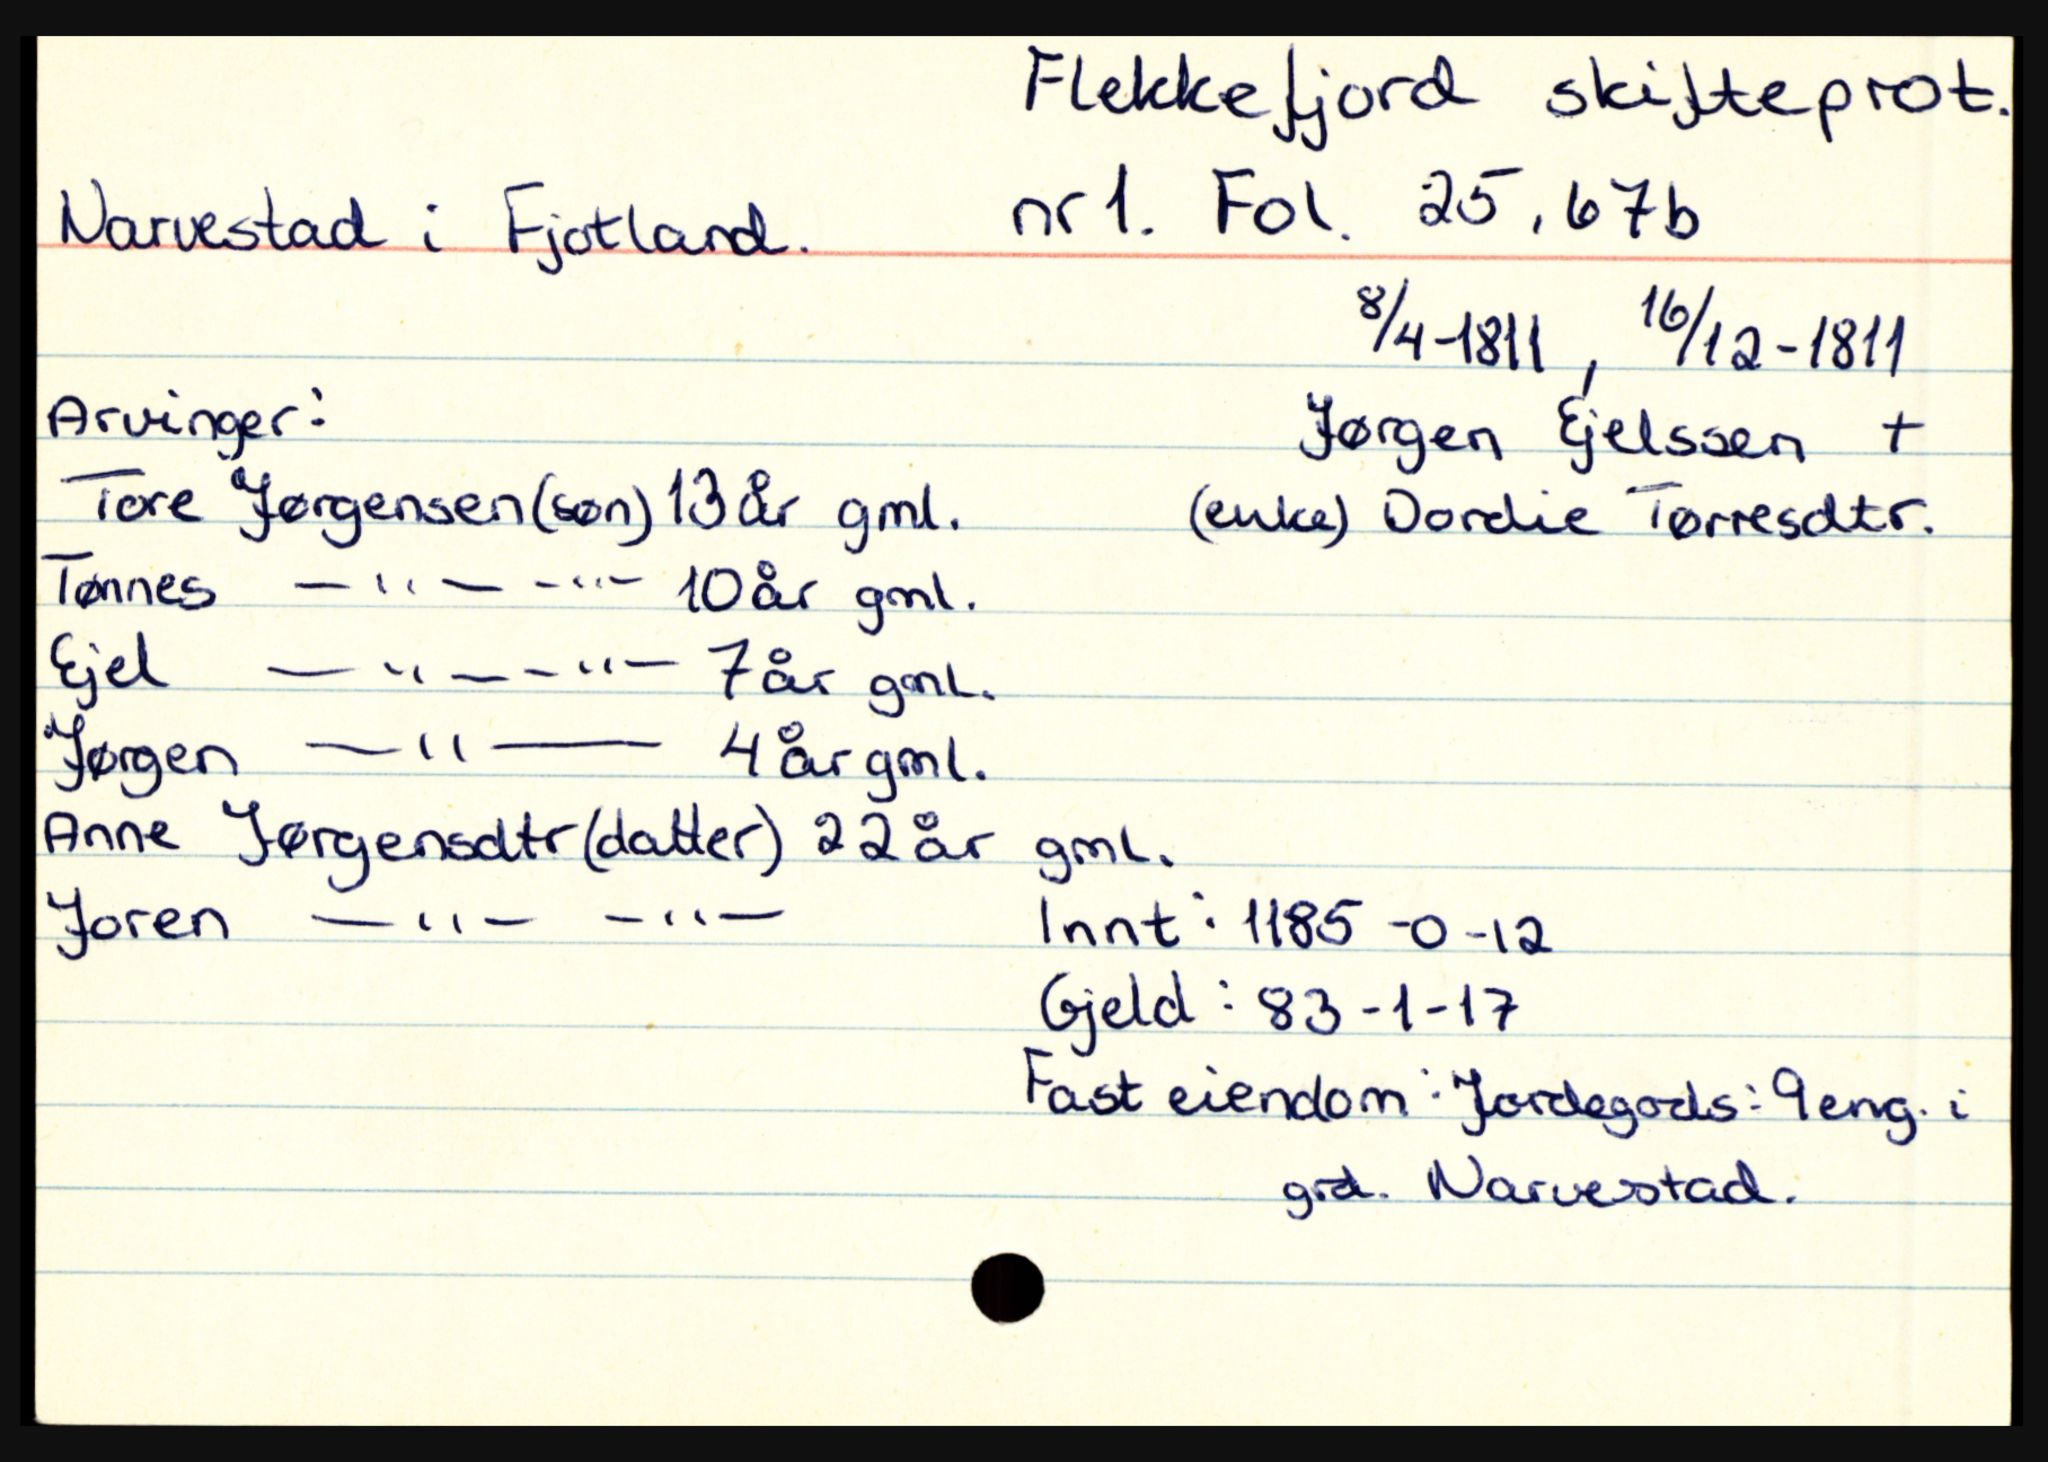 Flekkefjord skifteprot.
Narvestad i Fjotland. nr 1. Fol. 25, 67b
8/4-1811, 16/12-1811
Arvinger: Jørgen Ejelssen +
Tore Jørgensen (søn) 13 år gml. (enke) Dordie Tørresdtr.
Tønnes — " — - " - 10 år gml.
Ejel — " — - " — 7 år gml.
Jørgen — " — 4 år gml.
Anne Jørgensdtr (datter) 22 år gml.
Joren — " — - " — Innt: 1185-0-12
Gjeld: 83-1-17
Fast eiendom: Jordegods: 9 eng. i
grd. Narvestad.